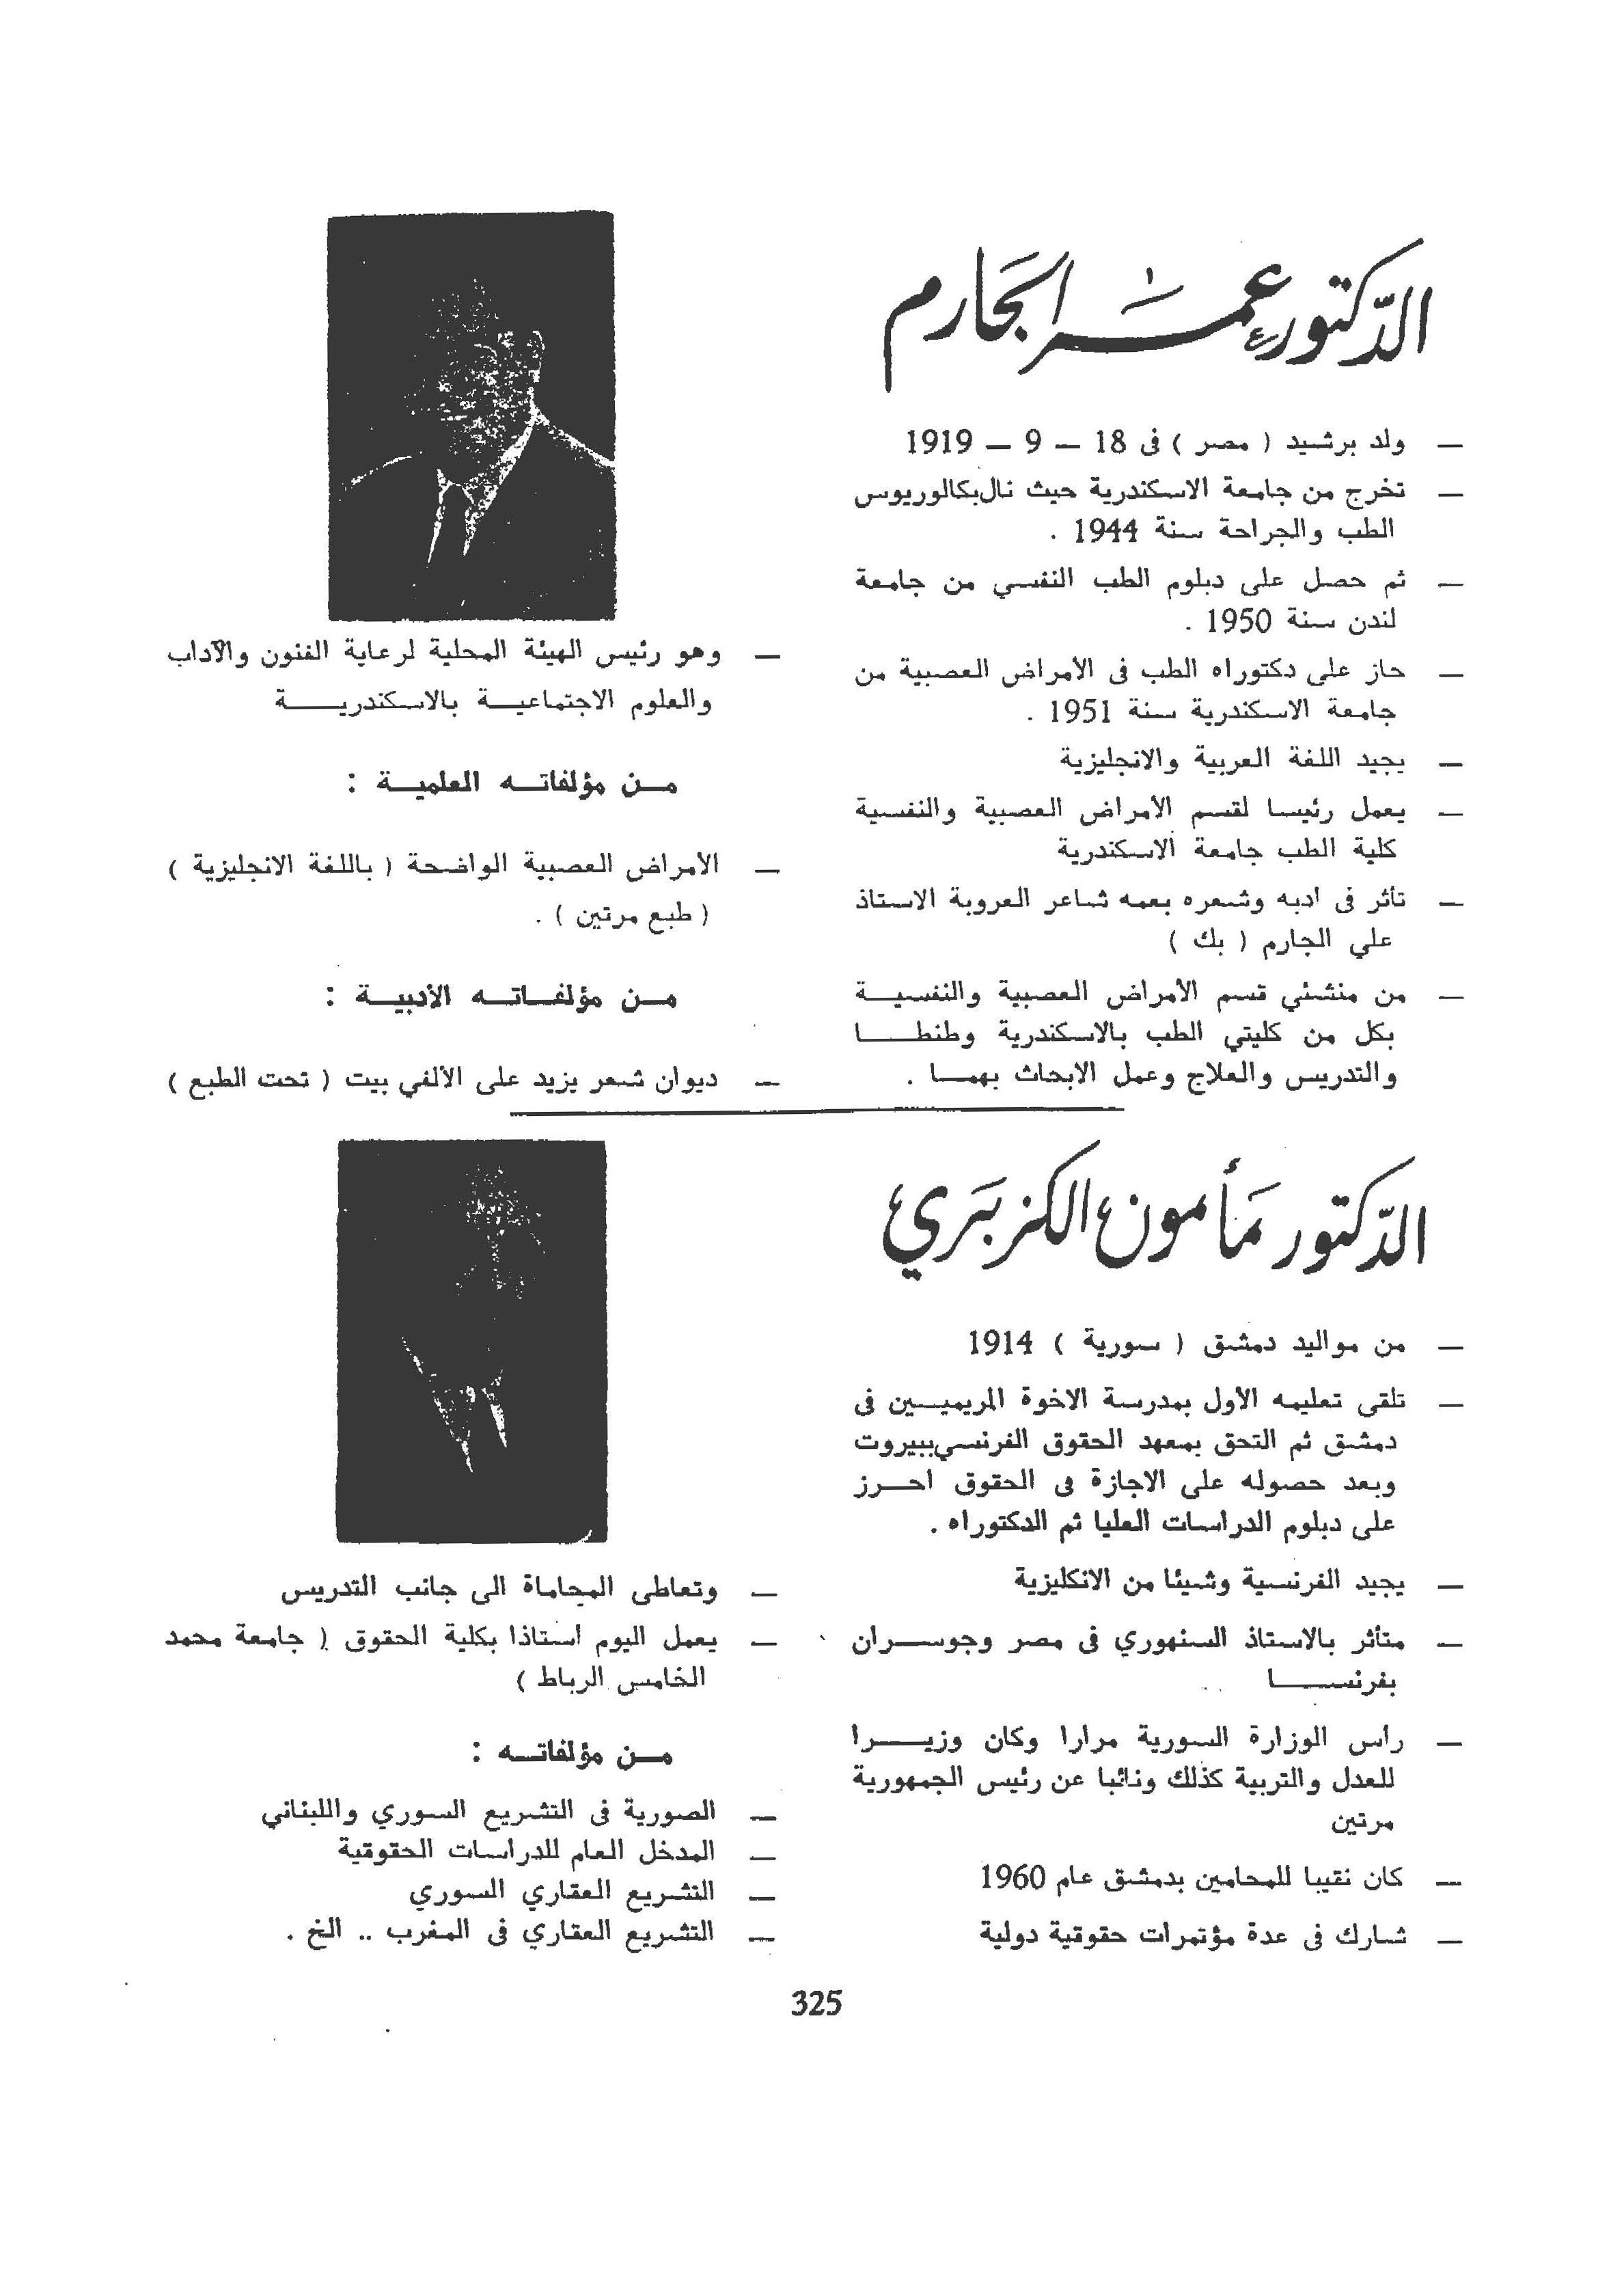 الدكتور عمر الجارم
— ولد برشيد ( مصر ) فى 18 — 9 — 1919
— تخرج من جامعة الاسكندرية حيث نال بكالوريوس
الطب والجراحة سنة 1944 .
— ثم حصل على دبلوم الطب النفسي من جامعة
لندن سنة 1950 .
— حاز على دكتوراه الطب فى الأمراض العصبية من
جامعة الاسكندرية سنة 1951 .
— يجيد اللغة العربية والانجليزية
— يعمل رئيسا لقسم الأمراض العصبية والنفسية
كلية الطب جامعة الاسكندرية
— تأثر فى ادبه وشعره بعمه شاعر العروبة الاستاذ
علي الجارم ( بك )
— من منشئي قسم الأمراض العصبية والنفسيـة
بكل من كليتي الطب بالاسكندرية وطنطـا
والتدريس والعلاج وعمل الابحاث بهمـا .
— وهو رئيس الهيئة المحلية لرعاية الفنون والآداب
والعلوم الاجتماعيـة بالاسكندريـة
مـن مؤلفاتـه العلميـة :
— الأمراض العصبية الواضحة ( باللغة الانجليزية )
( طبع مرتين ) .
مـن مؤلفـاتـه الأدبيـة :
— ديوان شعر يزيد على الألفي بيت ( تحت الطبع )
الدكتور مأمون الكزبري
— من مواليد دمشق ( سورية ) 1914
— تلقى تعليمه الأول بمدرسة الاخوة المريميـين فى
دمشق ثم التحق بمعهد الحقوق الفرنسي ببيروت
وبعد حصوله على الاجازة فى الحقوق احـرز
على دبلوم الدراسات العليا ثم الدكتوراه .
— يجيد الفرنسية وشيئا من الانكليزية
— متأثر بالاستاذ السنهوري فى مصر وجوسـران
بفرنسـا
— رأس الوزارة السورية مرارا وكان وزيـرا
للعدل والتربية كذلك ونائبا عن رئيس الجمهورية
مرتين
— كان نقيبا للمحامين بدمشق عام 1960
— شارك فى عدة مؤتمرات حقوقية دولية
— وتعاطى المحاماة الى جانب التدريس
— يعمل اليوم أستاذا بكلية الحقوق ( جامعة محمد
الخامس الرباط )
مـن مؤلفاتـه :
— الصورية فى التشريع السوري واللبناني
— المدخل العام للدراسات الحقوقية
— التشريع العقاري السوري
— التشريع العقاري فى المغرب .. الخ .
325